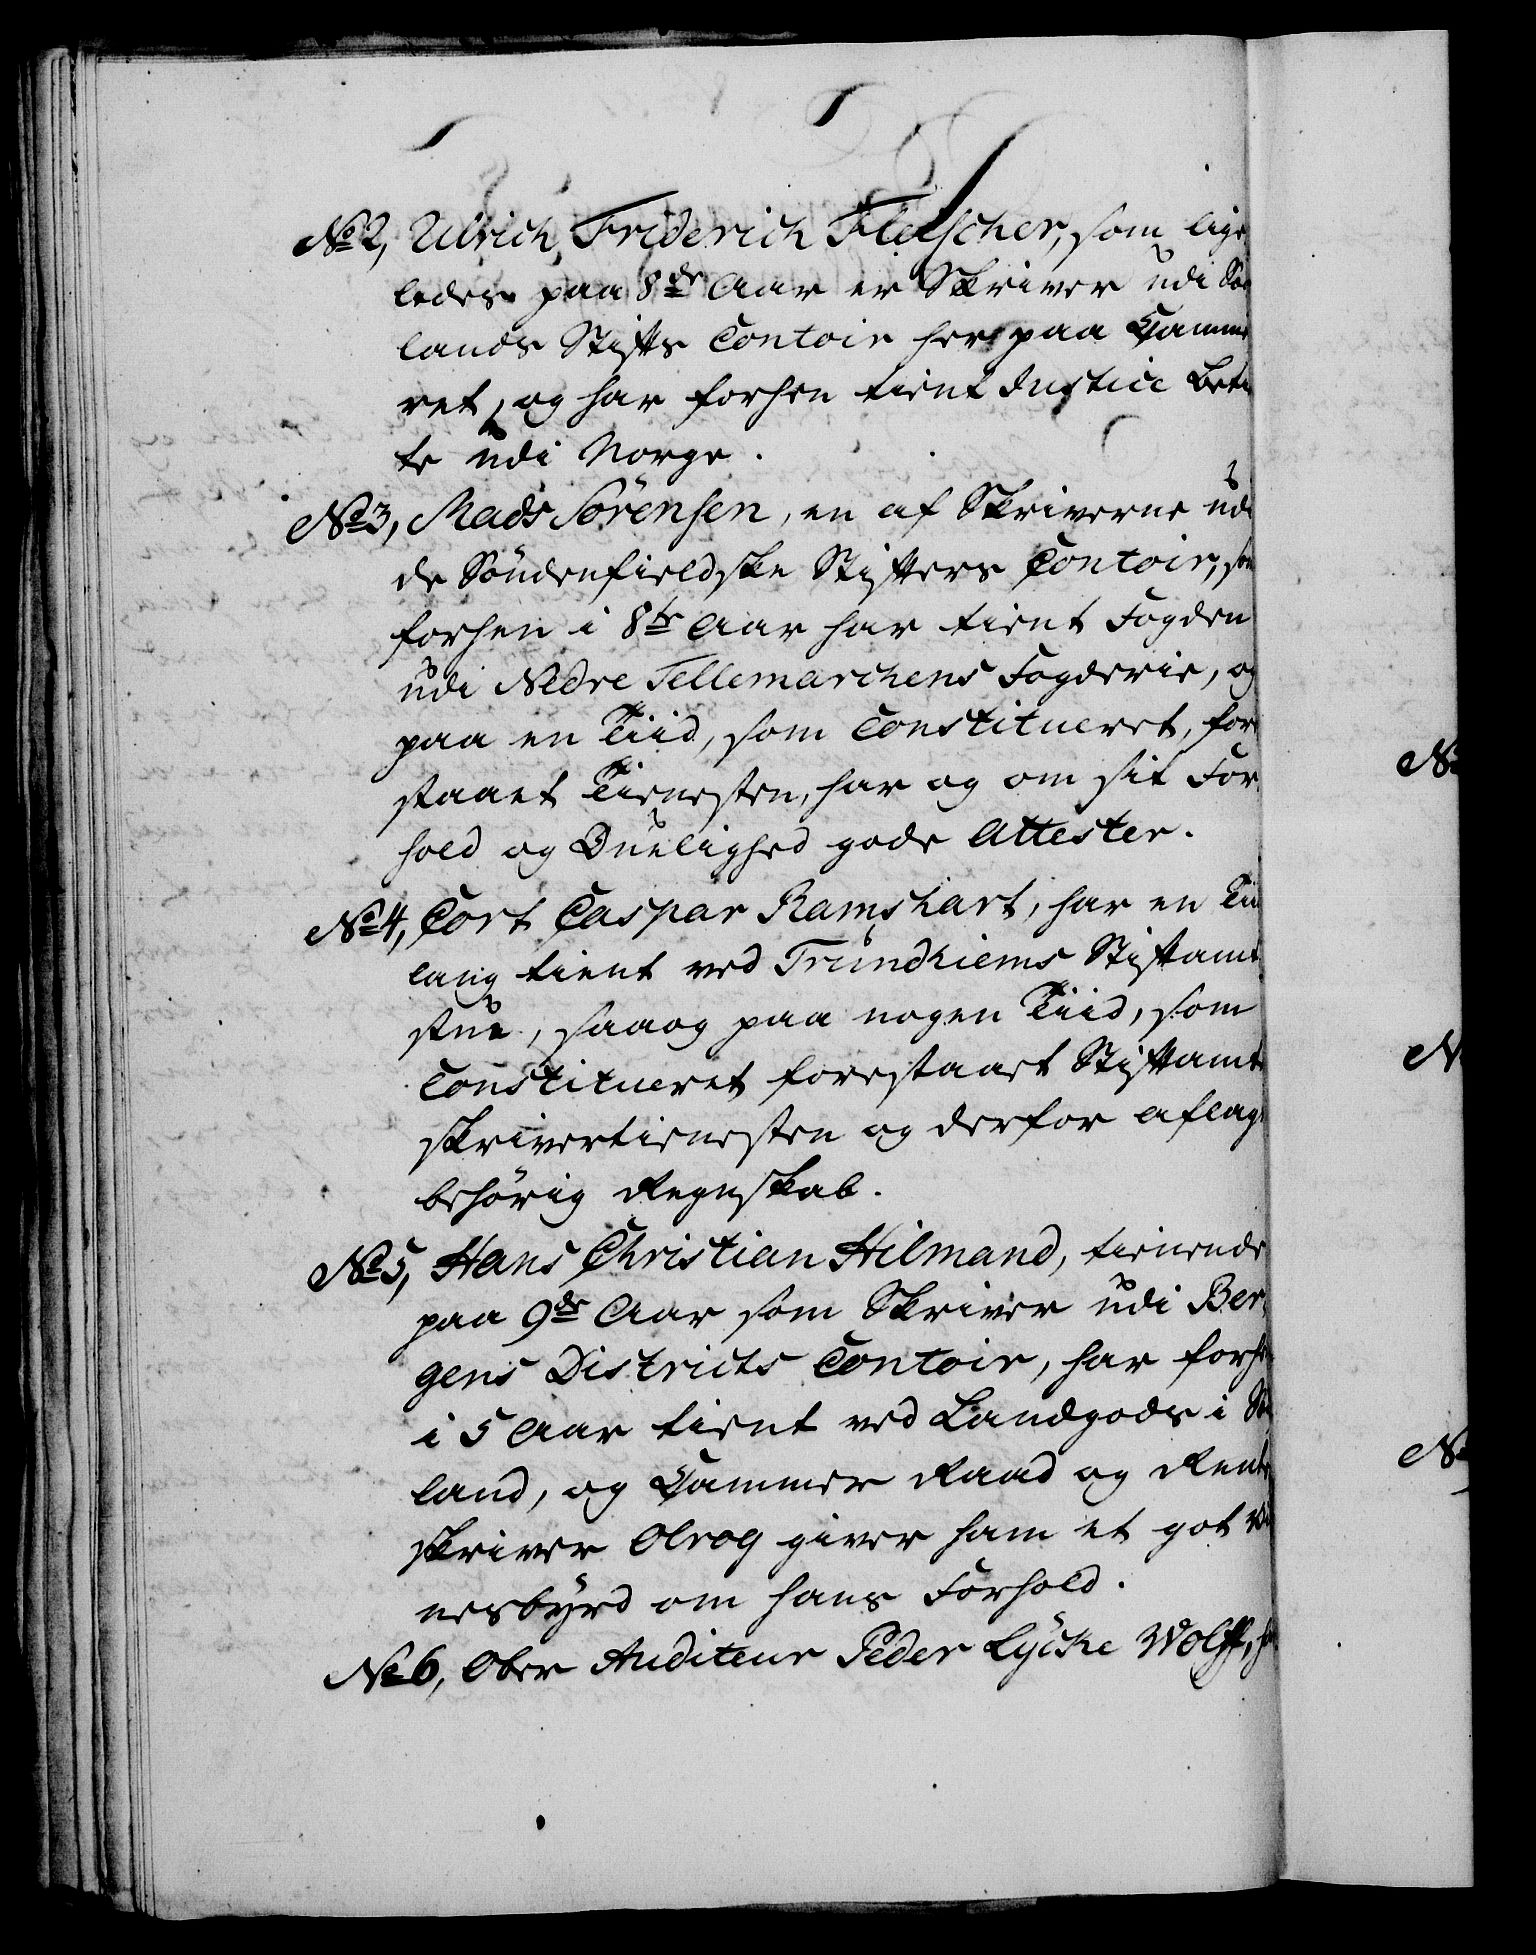 No 2, Ulrich Friderich Fleischer, som lige
ledes paa 8de Aar er Skriver udi
lands Stifts Contoir her paa Camme
ret, og har forhen tient Justice Betien
te udi Norge.
No 3, Mads Sörensen, en af Skriverne udi
de Söndenfieldske Stifters Contoir, som
forhen i 8te Aar har tient Fogden
udi Nedre Tellemarchens Fogderie, og
paa en Tiid, som Constitueret, fore
staaet Tienesten, har og om sit For
hold og Duelighed gode Attester.
No 4, Cort Caspar Ramshart, har en Tiid
lang tient ved Trundhiems Stiftamt
stue, saaog paa nogen Tiid, som
Constitueret forestaaet Stiftamt
skrivertienesten og derfor aflagt
behörig Regnskab.
No 5, Hans Christian Hilmand, tienende
paa 9de Aar som Skriver udi Ber
gens Districts Contoir, har forhen
i 5 Aar tient ved Landgods i
land, og Cammer Raad og Rente
skriver Olrog giver ham et got Vid
nesbÿrd om hans Forhold.
No 6, Ober Auditeur Peder Lÿcke Wolff,
No
No
No